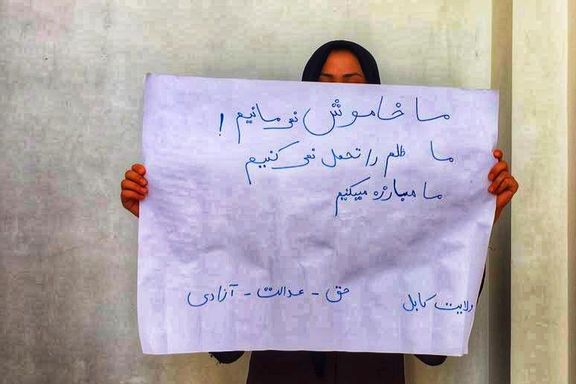 ما خاموش نمی مانیم !
ما ظلم را تحمل نمی کنیم
ما مبارزه میکنیم
حق - عدالت - آزادی
ولایت کابل